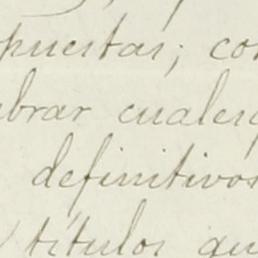 puestas; con
ebrar cuales
definitivos
títulos qu